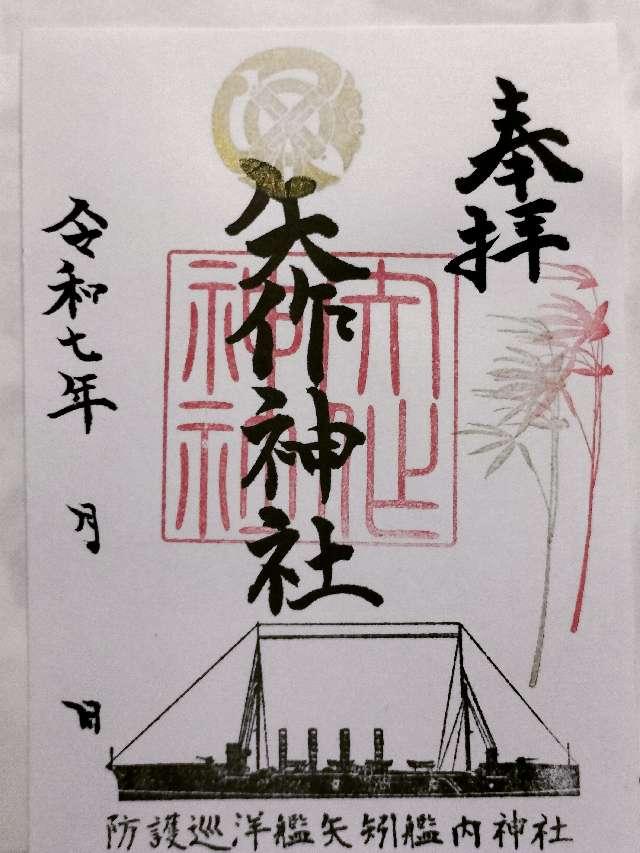 奉拝
矢作神社
令和七年 月 日
防護巡洋艦矢矧艦内神社